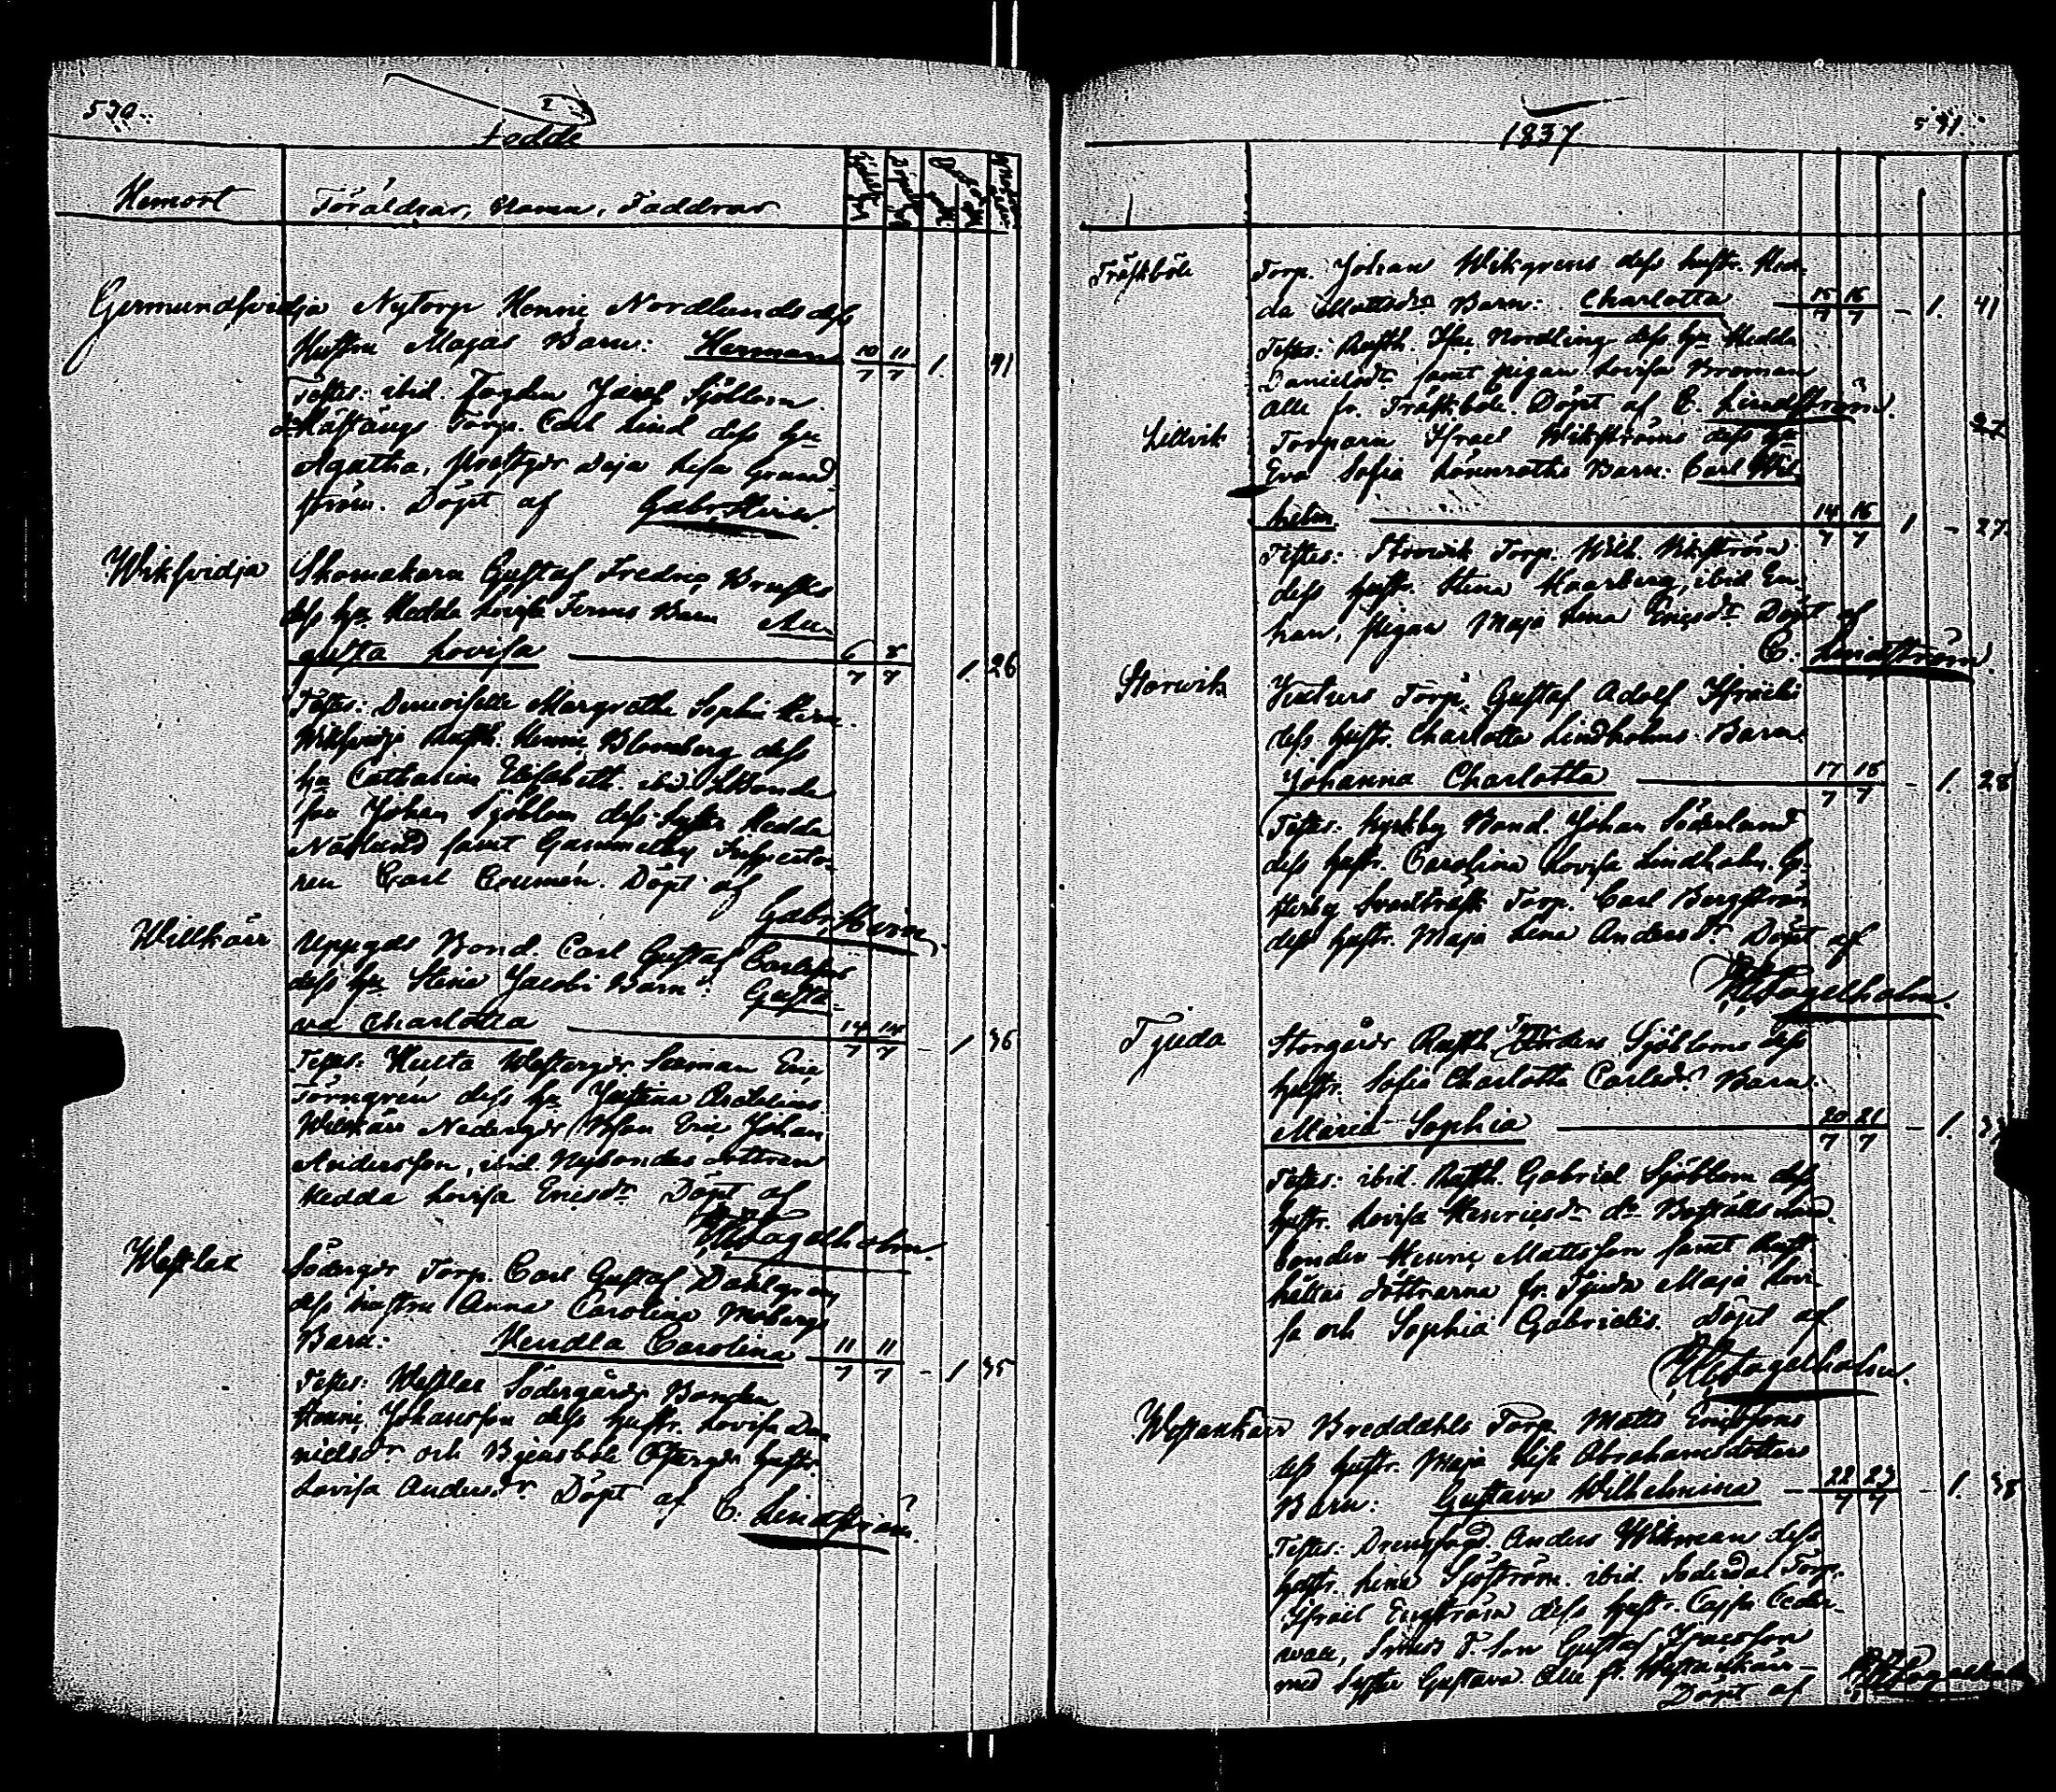 530.
Födde
Hemort
Föräldrar, Namn, Faddrar
Germundsvidja Nytorp Henric Nordlunds dess
Hustru Majas Barn: Herman 10/7 11/7 1. 41
Testes: ibid. Fogden Jacob Sjöblom.
Torp. Carl Lind dess hu
Agatha, Deja Lisa Grand
ström. Döpt af Gabr. Hirn.
Wiksvidja Skomakaren Gustaf Fredric
dess hu Hedda Lovisa Barn Au-
gusta Lovisa 6/7 8/7 1. 26
Testes: Demoiselle Margretha Sophia Hirn.
Wiksvidja Rusth. Henric Blomberg dess
hu Catharina Elisabeth. ibid.
Johan Sjöblom dess Hedda
Näslund samt Gammelby Inspecto-
ren Carl. Döpt af
Gabr. Hirn.
Willkärr Uppgds Bond. Carl Gustaf Carlssons
dess hu Stina Jacobs Barn: Gusta-
va Charlotta 14/7 14/7 - 1 36
Testes: Hulta Westergdr Eric
Törngren dess hu Justina
Willkärr Nedergdr Eric Johan
Andersson, ibid. dottren
Hedda Lovisa Ericsdr Döpt af
Fagelholm.
Westlax Södergdr Torp. Carl Gustaf Dahlgren
dess hustru Anna Carolina Mobergs
Barn: Hendla Carolina 11/7 11/7 - 1 35
Testes: Westlax Södergårds Bonden
Henric Johansson dess hustr. Lovisa Da-
nielsdr och Bjensböle Östergdr hustr.
Lovisa Andersdr. Döpt af C. Lindström.
1837
531.
Träskböle Torp. Johan Wikgrens dess hustr. Hed-
da Mattsdr Barn: Charlotta 15/7 16/7 - 1. 41
Testes: Rusth. Isac Nordling dess hu Hedda
Danielsdr samt pigan Lovisa Broman
alle fr. Träskböle. Döpt af C. Lindström.
27
Lillvik Torparn Israel Wikströms dess hu
Eva Sofia Lönnroths Barn: Carl Wil-
helm 14/7 16/7 1 - 27.
Testes: Storwik Torp. Wilh. Wikström
dess hustr. Stina Hagberg, ibid En-
kan, Pigan Maja Lena Ericsdr Döpt af
C. Lindström.
Storwik Torp. Gustaf Adolf Israels
dess hustr. Charlotta Lindholms Barn.
Johanna Charlotta 17/7 18/7 - 1. 28
Testes. Kyrkby Bond. Johan Söderlund
dess hustr. Carolina Lovisa Lindholm.
Torp. Carl Bergström
dess hustr. Maja Lena Andersdr. Döpt af
Fagelholm.
Tjuda Storgårds Rusth. Anders Sjöbloms dess
hustr. Sofia Charlotta Carlsdr. Barn.
Maria Sophia 20/7 21/7 - 1.
Testes: ibid. Rusth. Gabriel Sjöblom dess
hustr. Lovisa Henricsdr do Boställs Land-
bonden Henric Mattsson samt Rust-
hållar döttrarna fr. Tjuda Maja Lovi-
sa och Sophia Gabriels. Döpt af
Fagelholm.
Westankärr Breddahls Torp. Matts Ericssons
dess hustr. Maja Lisa Abrahamsdotters
Barn: Gustava Wilhelmina 22/7 23/7 - 1. 38
Testes. Drengfogd. Anders Wikman dess
hustr. Lena Sjöström. ibid. Söderdal Torp.
Israel Engström dess hustr. Cajsa Ceder-
wall, T. son Gustaf Isacsson
med Syster Gustava Alle fr. Westankärr.
Döpt af Fagelholm